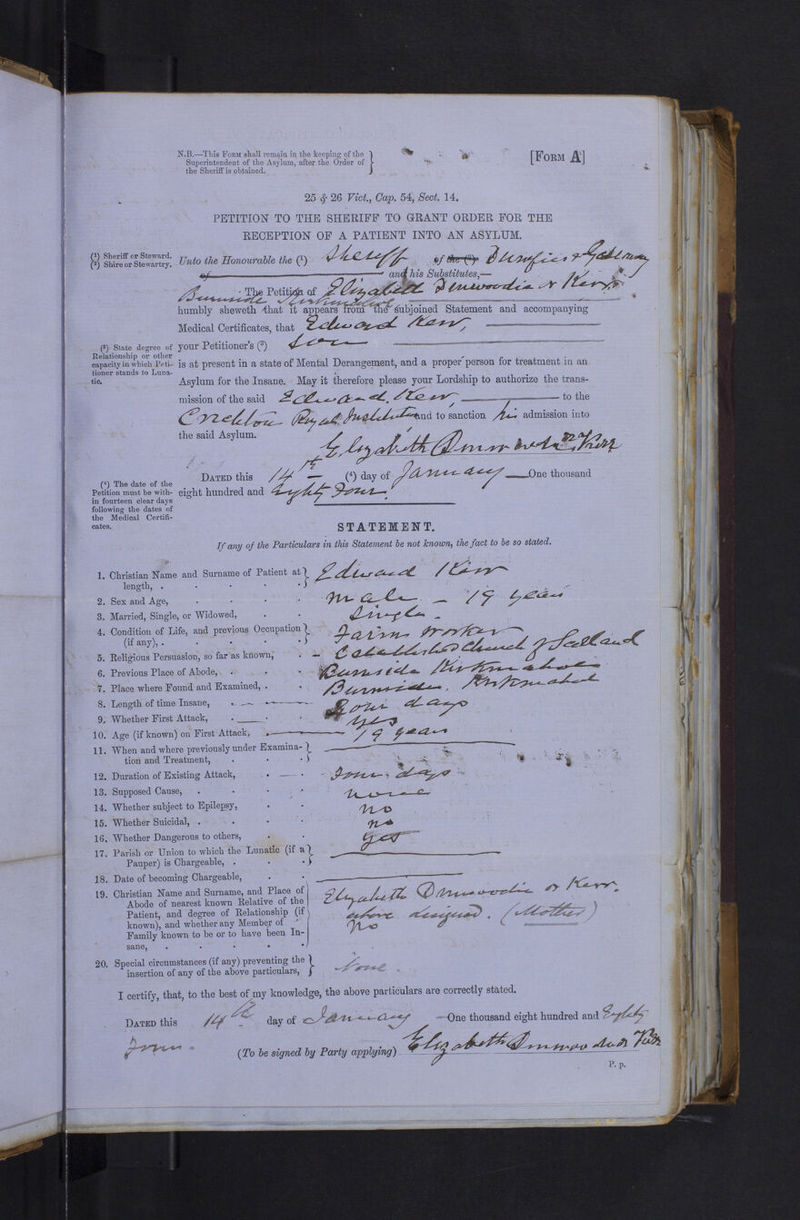 N.B.—This FORM shall remain in the keeping of the
Superintendent of the Asylum, after the Order of
the Sheriff is obtained.
[FORM A]
25 & 26 Vict., Cap. 54, Sect. 14.
PETITION TO THE SHERIFF TO GRANT ORDER FOR THE
RECEPTION OF A PATIENT INTO AN ASYLUM.
(1) Sheriff or Steward.
(2) Shire or Stewartry.
Unto the Honourable the (1) Sheriff of the (2) Dumfries & Galloway
of and his Substitutes,—
The Petition of Elizabeth Dinwoodie or Kerr,
Burnside Kirkmahoe
humbly sheweth that it appears from the subjoined Statement and accompanying
Medical Certificates, that Edward Kerr,
(3) State degree of
Relationship or other
capacity in which Peti-
tioner stands to Luna-
tic.
your Petitioner's (3) Son
is at present in a state of Mental Derangement, and a proper person for treatment in an
Asylum for the Insane. May it therefore please your Lordship to authorize the trans-
mission of the said Edward Kerr, to the
Crichton Royal Institution and to sanction his admission into
the said Asylum.
Elizabeth Dinwoodie or Kerr
(4) The date of the
Petition must be with-
in fourteen clear days
following the dates of
the Medical Certifi-
cates.
DATED this 14th (4) day of January One thousand
eight hundred and Eighty Four.
STATEMENT.
If any of the Particulars in this Statement be not known, the fact to be so stated.
1. Christian Name and Surname of Patient at
length, . Edward Kerr
2. Sex and Age, Male - 19 years
3. Married, Single, or Widowed, Single -
4. Condition of Life, and previous Occupation
(if any), . Farm worker
5. Religious Persuasion, so far as known, Established Church of Scotland
6. Previous Place of Abode, . Burnside Kirkmahoe
7. Place where Found and Examined, . Burnside, Kirkmahoe
8. Length of time Insane, . Four days
9. Whether First Attack, . Yes
10. Age (if known) on First Attack, . 19 years
11. When and where previously under Examina-
tion and Treatment,
12. Duration of Existing Attack, Four days
13. Supposed Cause, . None
14. Whether subject to Epilepsy, No
15. Whether Suicidal, . no
16. Whether Dangerous to others, Yes
17. Parish or Union to which the Lunatic (if a
Pauper) is Chargeable, .
18. Date of becoming Chargeable,
19. Christian Name and Surname, and Place of
Abode of nearest known Relative of the
Patient, and degree of Relationship (if
known), and whether any Member of
Family known to be or to have been In-
sane, .
Elizabeth Dinwoodie or Kerr.
above designed. (Mother)
No
20. Special circumstances (if any) preventing the
insertion of any of the above particulars, None.
I certify, that, to the best of my knowledge, the above particulars are correctly stated.
DATED this 14th day of January —One thousand eight hundred and Eighty
Four -
(To be signed by Party applying) Elizabeth Dinwoodie or Kerr
P. p.